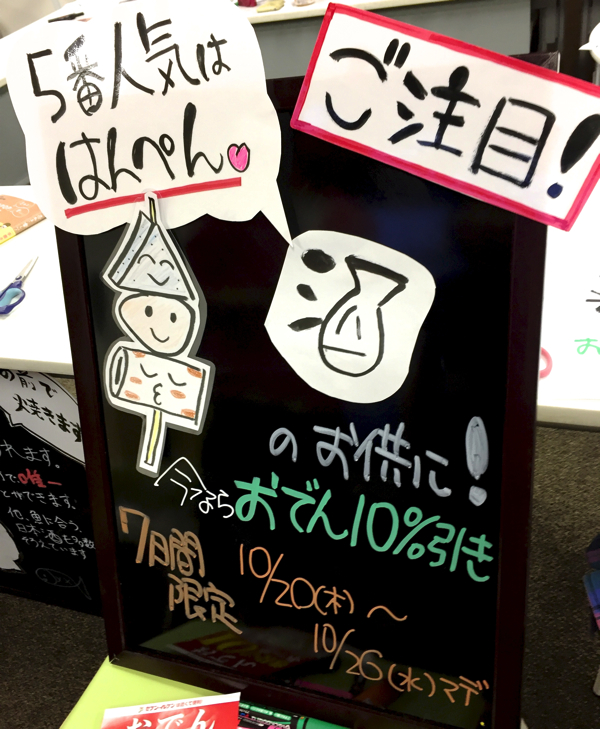 5番人気は
はんぺん
ご注目!
酒
のお供に!
今なら おでん10%引き
7日間
限定
10/20(木)～
10/26(水)マデ
の前で
焼きます
れます。
で唯一
とができます。
他、魚に合う、
日本酒も多数
おでん